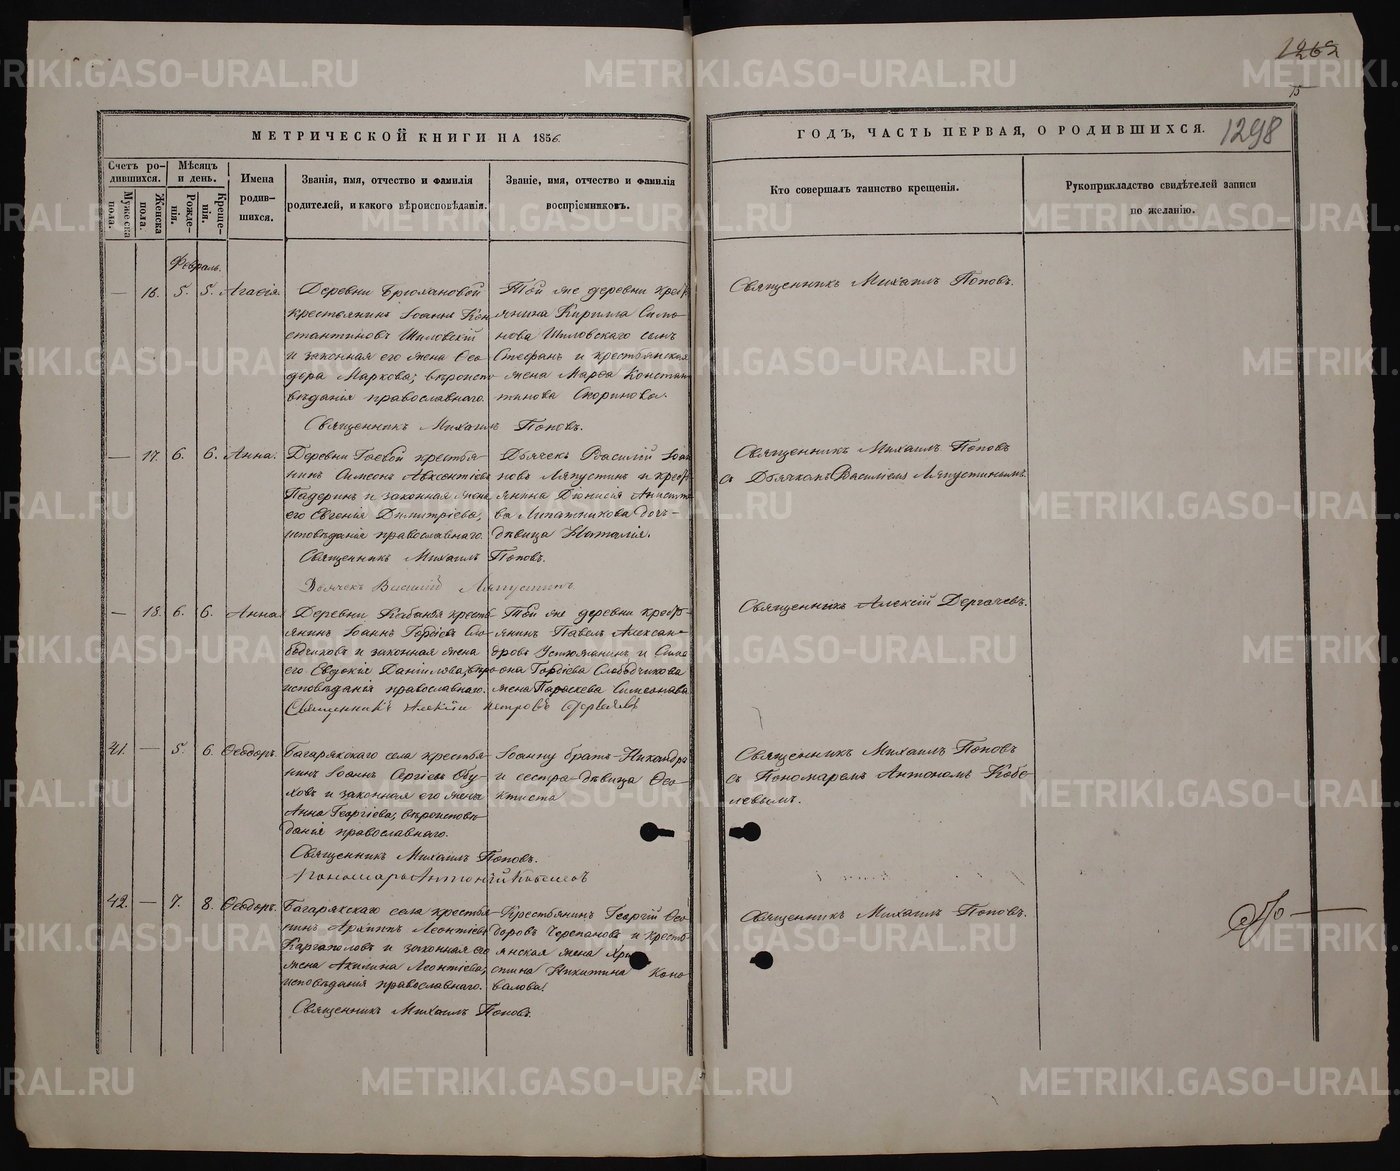 1262
15
МЕТРИЧЕСКОЙ КНИГИ НА 1856.
ГОДЪ, ЧАСТЬ ПЕРВАЯ, О РОДИВШИХСЯ.
1298
Счетъ ро-
дившихся.
Мужеска
пола.
Женска
пола.
Мѣсяцъ
и день.
Рожде-
нія.
Креще-
нія.
Имена
родив-
шихся.
Званія, имя, отчество и фамилія
родителей, и какого вѣроисповѣданія.
Званіе, имя, отчество и фамилія
воспріемниковъ.
Кто совершалъ таинство крещенія.
Рукоприкладство свидѣтелей записи
по желанію.
Февраль.
— 16. 5. 5. Агаѳія.
Деревни
крестьянинъ Іоаннъ Кон
стантиновъ Шиловскій
и законная его жена Ѳео-
дора Маркова; вѣроиспо
вѣданія православнаго.
Священникъ Михаилъ Поповъ.
Той же деревни крест
янина Кирилла Симо-
нова Шиловскаго сынъ
Стефанъ и крестьянская
жена Марѳа Констан
тинова Скоринова.
Священникъ Михаилъ Поповъ.
— 17. 6. 6. Анна.
Деревни Гаевой крестья-
нинъ Симеонъ Авксентіевъ
Падеринъ и законная жена
его Евгенія Димитріева,
исповѣданія православнаго.
Священникъ Михаилъ Поповъ.
Дьячекъ Василій Ляпустинъ
Дьячекъ Василій Іоан
новъ Ляпустинъ и крест
янина Діонисія
ва Липатникова дочь-
дѣвица Наталія.
Священникъ Михаилъ Поповъ
съ Дьячкомъ Василіемъ Ляпустинымъ.
— 18. 6. 6. Анна.
Деревни Кабанья кресть
янинъ Іоаннъ Гордіевъ Сло-
бодчиковъ и законная жена
его Евдокія Даніилова, вѣро
исповѣданія православнаго.
Священникъ Алексій Петровъ Дергачевъ
Той же деревни крест-
янинъ Павелъ Алексан-
дровъ Устюжанинъ и Симе
она Гордіева Слободчикова
жена Параскева Симеонова
Священникъ Алексій Дергачевъ.
41. — 5. 6. Ѳеодоръ.
Багарякскаго села крестья-
нинъ Іоаннъ Сергіевъ Обу-
ховъ и законная его жена
Анна Георгіева, вѣроисповѣ-
данія православнаго.
Священникъ Михаилъ Поповъ.
Пономарь Антоній Кобелевъ
Іоанну братъ Никандръ
и сестра дѣвица Ѳео-
ктиста
Священникъ Михаилъ Поповъ
съ Пономаремъ Антономъ Кобе-
левымъ.
42. — 7. 8. Ѳеодоръ.
Багарякскаго села крестья-
нинъ Архипъ Леонтіевъ
Каргаполовъ и законная его
жена Акилина Леонтіева,
исповѣданія православнаго.
Священникъ Михаилъ Поповъ.
Крестьянинъ Георгій Ѳео-
доровъ Черепановъ и кресть
янская жена Хри
стина Никитина Коно-
валова.
Священникъ Михаилъ Поповъ.
METRIKI.GASO-URAL.RU